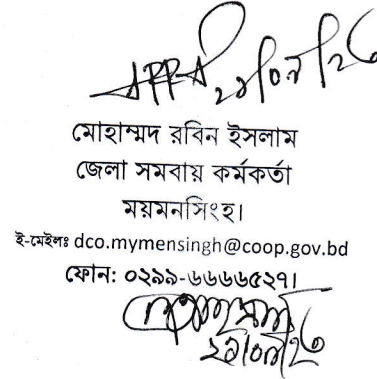 ২৯/০৭/২৬
মোহাম্মদ রবিন ইসলাম
জেলা সমবায় কর্মকর্তা
ময়মনসিংহ।
ই-মেইলঃ dco.mymensingh@coop.gov.bd
ফোন: ০২৯৯-৬৬৬৬৫২৭।